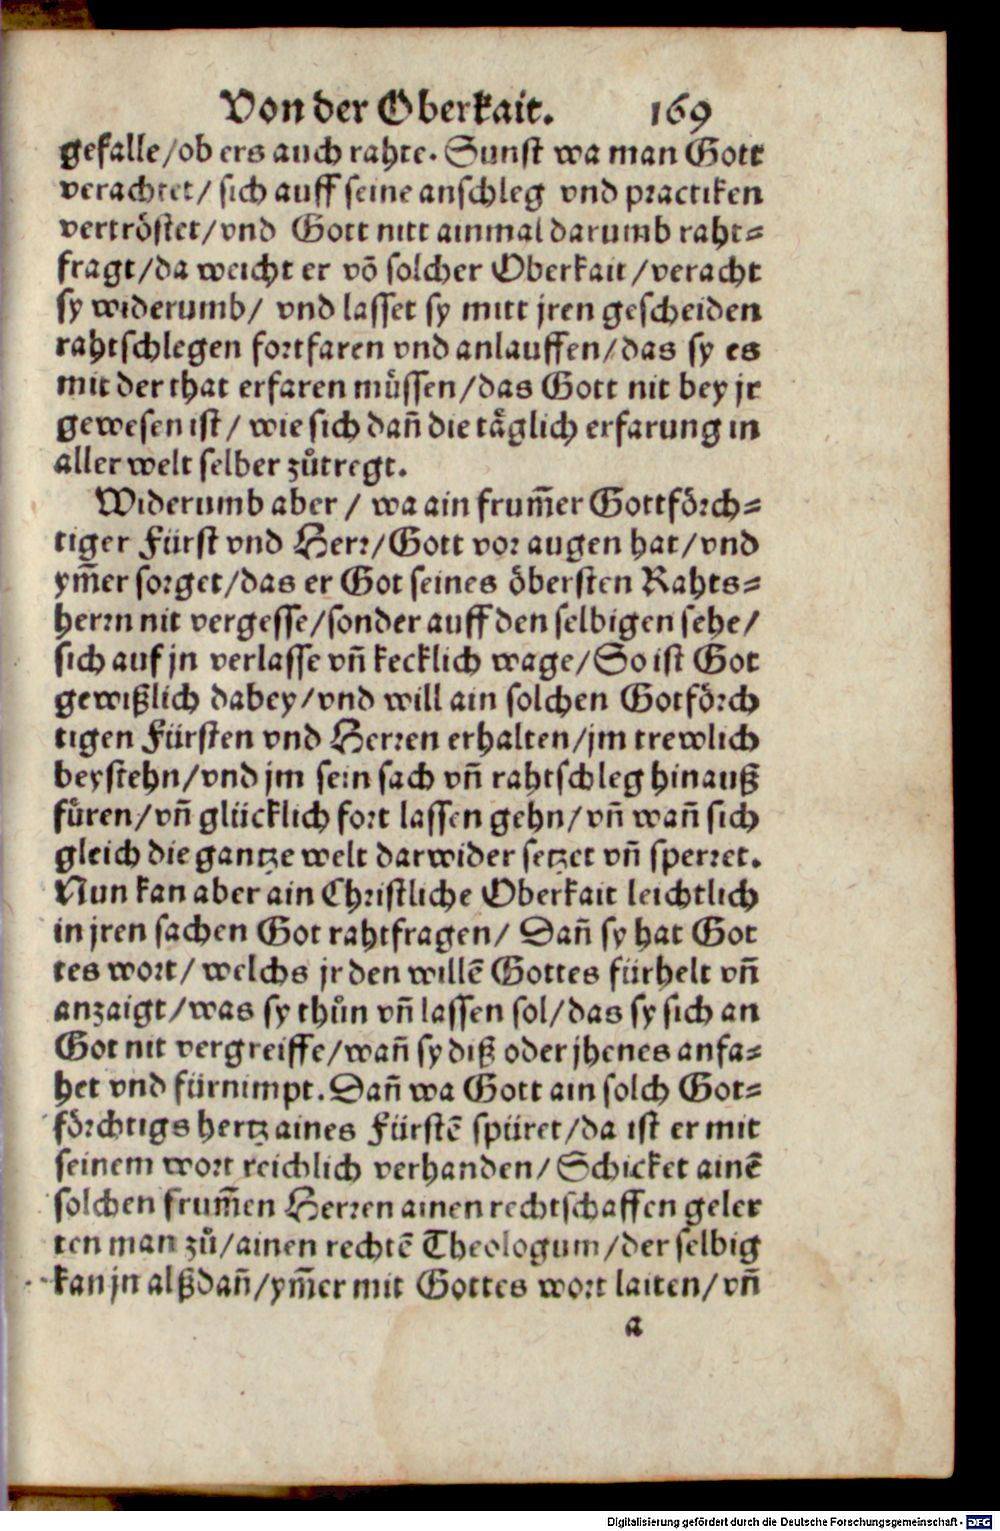 Von der Oberkait. 169
gefalle/ob ers auch rahte. Sunst wa man Gott
verachtet/ sich auff seine anschleg vnd practiken
vertröstet/vnd Gott nitt ainmal darumb raht⸗
fragt/da weicht er võ solcher Oberkait/veracht
sy widerumb/ vnd lasset sy mitt jren gescheiden
rahtschlegen fortfaren vnd anlauffen/das sy es
mit der that erfaren muͤssen/das Gott nit bey jr
gewesen ist/ wie sich dañ die taͤglich erfarung in
aller welt selber zuͦtregt.
Widerumb aber / wa ain frum̃er Gottförch⸗
tiger Fürst vnd Herr/Gott vor augen hat/vnd
ym̃er sorget/das er Got seines öbersten Rahts⸗
herrn nit vergesse/sonder auff den selbigen sehe/
sich auf jn verlasse vñ kecklich wage/So ist Got
gewißlich dabey/vnd will ain solchen Gotförch
tigen Fürsten vnd Herren erhalten/jm trewlich
beystehn/vnd jm sein sach vñ rahtschleg hinauß
füren/vñ glücklich fort lassen gehn/vñ wañ sich
gleich die gantze welt darwider setzet vñ sperret.
Nun kan aber ain Christliche Oberkait leichtlich
in jren sachen Got rahtfragen/ Dañ sy hat Got
tes wort/ welchs jr den willẽ Gottes fürhelt vñ
anzaigt/was sy thuͦn vñ lassen sol/das sy sich an
Got nit vergreiffe/wañ sy diß oder jhenes anfa⸗
het vnd fürnimpt. Dañ wa Gott ain solch Got⸗
förchtigs hertz aines Fürstẽ spüret/da ist er mit
seinem wort reichlich verhanden/ Schicket ainẽ
solchen frum̃en Herren ainen rechtschaffen geler
ten man zuͦ/ainen rechtẽ Theologum/der selbig
kan jn alßdañ/ym̃er mit Gottes wort laiten/vñ
a
Digitalisierung gefördert durch die Deutsche Forschungsgemeinschaft - DFG